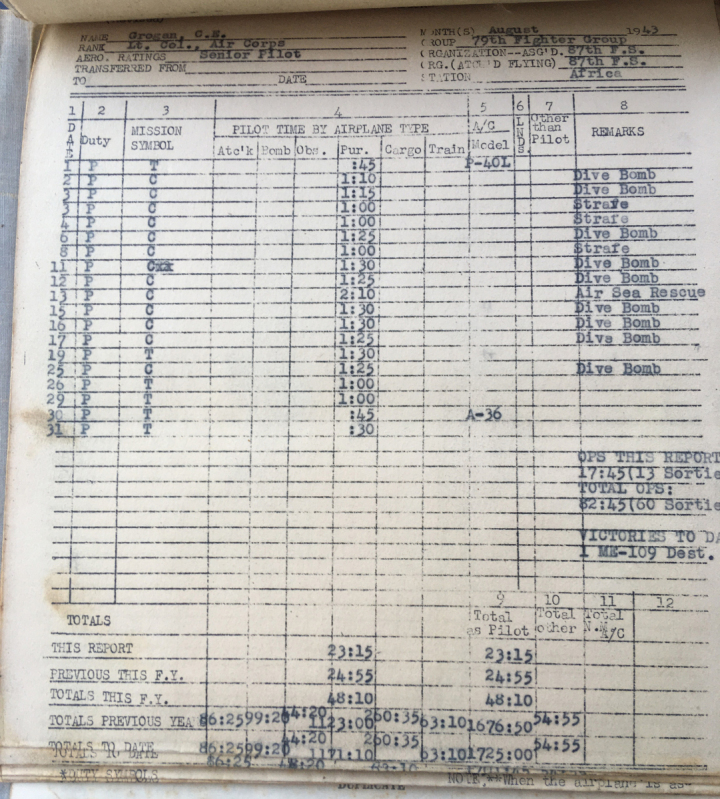 NAME Grogan, C.E. MONTH(S) August 1943
RANK Lt. Col., Air Corps GROUP 79th Fighter Group
AERO. RATINGS Senior Pilot ORGANIZATION--ASG'D. 87th F.S.
TRANSFERRED FROM ORG.(ATCH'D FLYING) 87th F.S.
TO DATE STATION Africa
1 2 3 4 5 6 7 8
DATE Duty MISSION SYMBOL PILOT TIME BY AIRPLANE TYPE A/C Model LNDS. Other than Pilot REMARKS
Atc'k Bomb Obs. Pur. Cargo Train
1 P T :45 P-40L
2 P C 1:10 Dive Bomb
3 P C 1:15 Dive Bomb
3 P C 1:00 Strafe
4 P C 1:00 Strafe
6 P C 1:25 Dive Bomb
8 P C 1:00 Strafe
11 P Cxx 1:30 Dive Bomb
12 P C 1:25 Dive Bomb
13 P C 2:10 Air Sea Rescue
15 P C 1:30 Dive Bomb
16 P C 1:30 Dive Bomb
17 P C 1:25 Dive Bomb
19 P T 1:30
25 P C 1:25 Dive Bomb
26 P T 1:00
29 P T 1:00
30 P T :45 A-36
31 P T :30
OPS THIS REPORT
17:45(13 Sortie
TOTAL OPS:
82:45(60 Sortie
VICTORIES TO DA
1 ME-109 Dest.
9 10 11 12
TOTALS Total as Pilot Total other Total N.M. A/C
THIS REPORT 23:15 23:15
PREVIOUS THIS F.Y. 24:55 24:55
TOTALS THIS F.Y. 48:10 48:10
TOTALS PREVIOUS YEA 86:25 99:20 44:20 1123:00 260:35 63:10 1676:50 54:55
TOTALS TO DATE 86:25 99:20 44:20 1171:10 260:35 63:10 1725:00 54:55
*DUTY SYMBOLS NOTE **When the airplane is as-
DUPLICATE